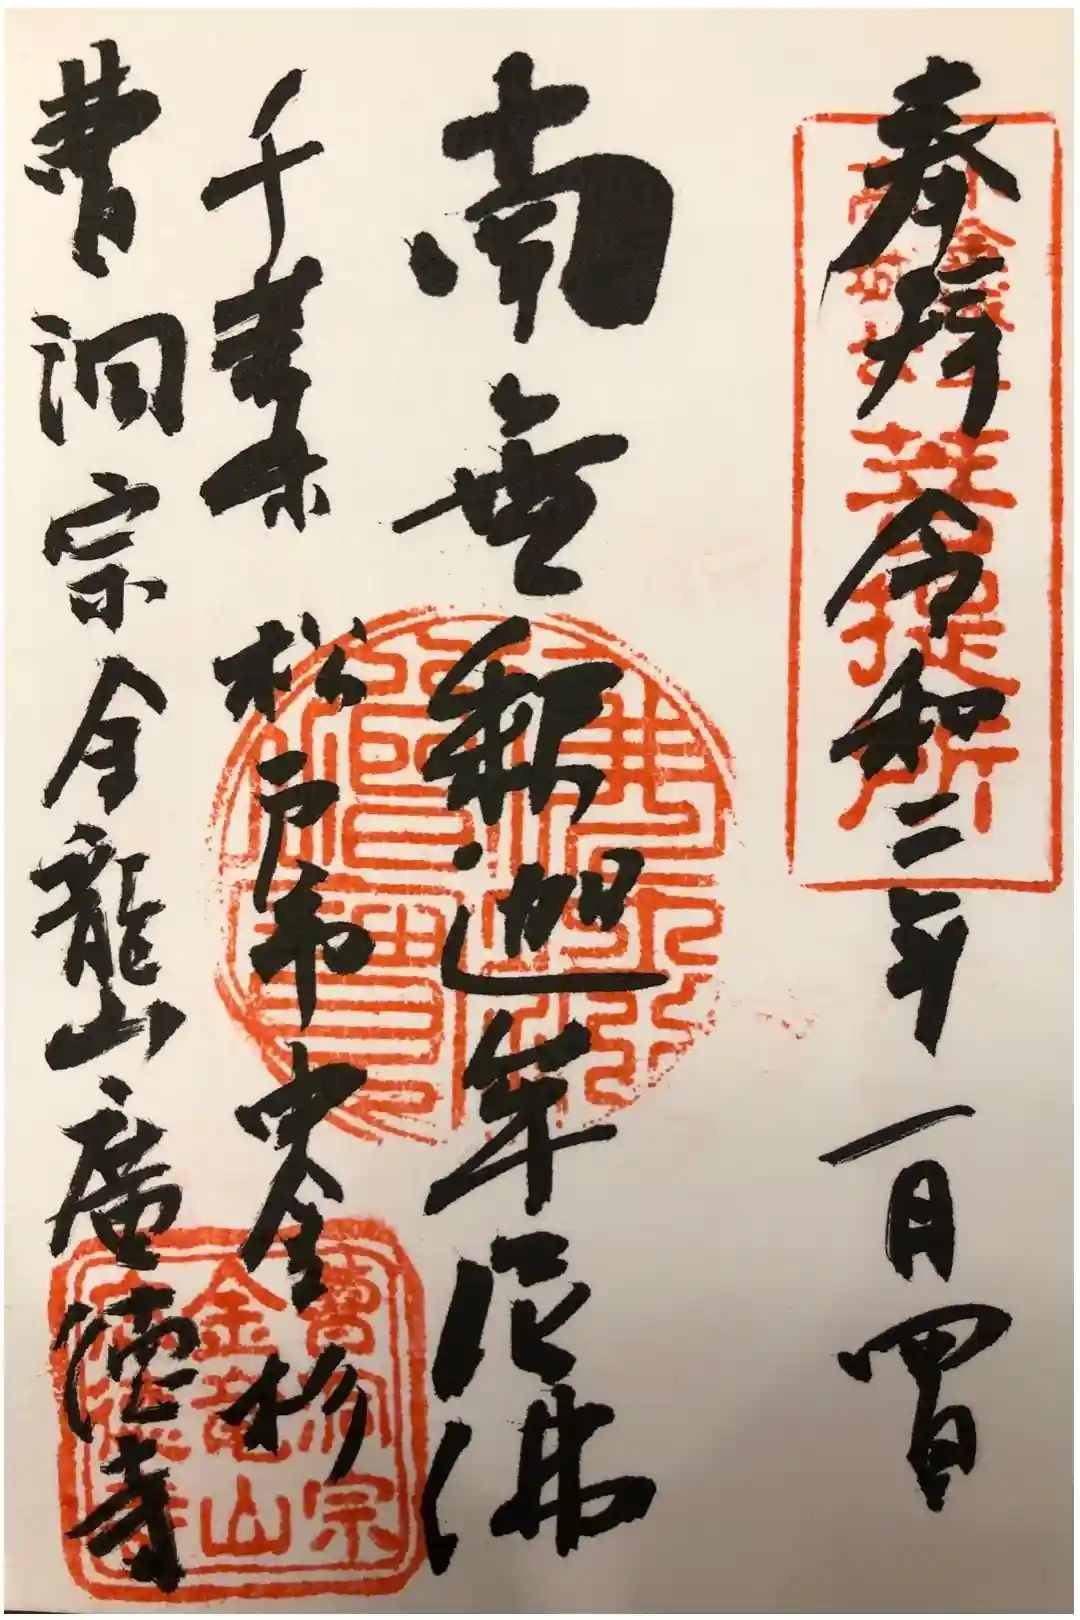 奉拝 令和二年 一月四日
南無釈迦牟尼佛
千葉県 松戸市 中金杉
曹洞宗 金龍山 廣徳寺
菩提所
曹洞宗
金竜山
廣徳寺